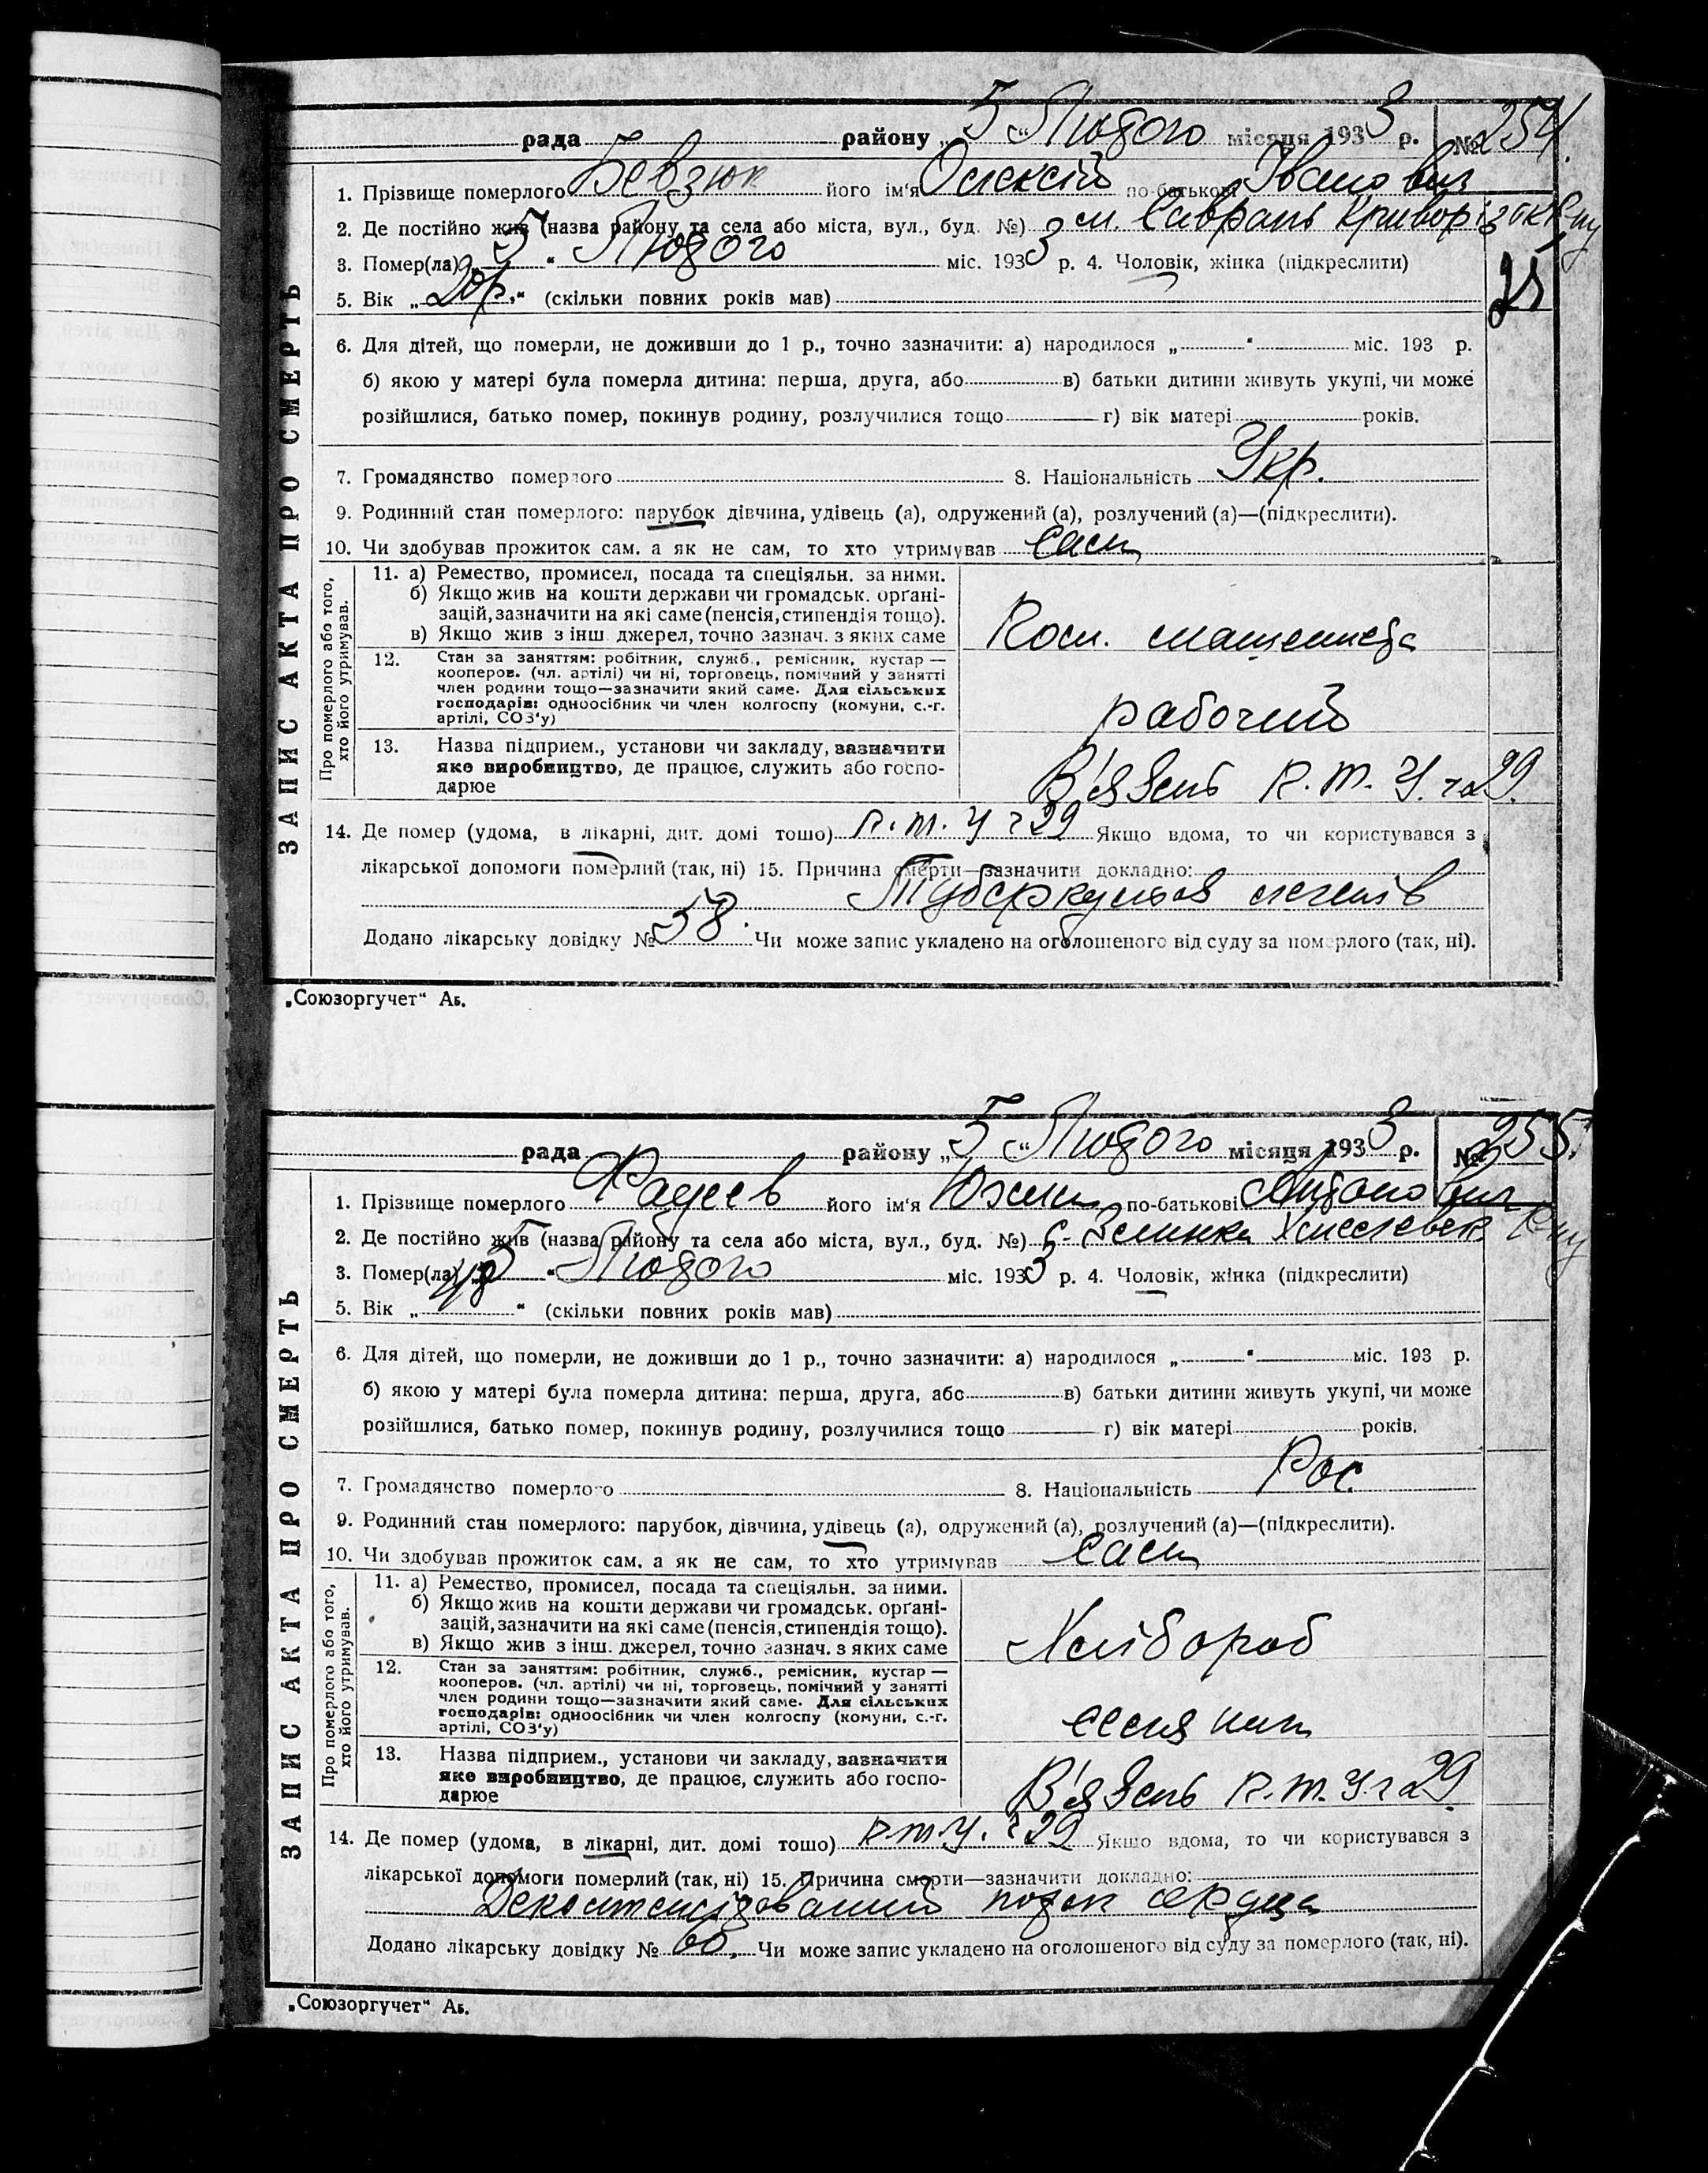 рада району „5“ Лютого місяця 1933 р. № 254.
1. Прізвище померлого Бевзюк його ім'я Олексій по-батькові Іванович
2. Де постійно жив (назва району та села або міста, вул., буд. №) м. Саврань
3. Помер(ла) „5“ Лютого міс. 1933 р. 4. Чоловік, жінка (підкреслити)
5. Вік „20р.“ (скільки повних років мав)
6. Для дітей, що померли, не доживши до 1 р., точно зазначити: а) народилося „ “ міс. 193 р.
б) якою у матері була померла дитина: перша, друга, або в) батьки дитини живуть укупі, чи може
розійшлися, батько помер, покинув родину, розлучилися тощо г) вік матері років.
7. Громадянство померлого 8. Національність Укр.
9. Родинний стан померлого: парубок дівчина, удівець (а), одружений (а), розлучений (а)—(підкреслити).
10. Чи здобував прожиток сам, а як не сам, то хто утримував Сам
ЗАПИС АКТА ПРО СМЕРТЬ
Про померлого або того, хто його утримував.
11. а) Ремество, промисел, посада та спеціяльн. за ними.
б) Якщо жив на кошти держави чи громадськ. орґані-
зацій, зазначити на які саме (пенсія, стипендія тощо).
в) Якщо жив з інш. джерел, точно зазнач. з яких саме
Пом. машиніста
12. Стан за заняттям: робітник, служб., ремісник, кустар —
кооперов. (чл. артілі) чи ні, торговець, помічний у занятті
член родини тощо—зазначити який саме. Для сільських
господарів: одноосібник чи член колгоспу (комуни, с.-г.
артілі, СОЗ'у)
рабочий
13. Назва підприєм., установи чи закладу, зазначити
яке виробництво, де працює, служить або госпо-
дарює
В'язень п.т.у. ч 29.
14. Де помер (удома, в лікарні, дит. домі тощо) п.т.у ч 29 Якщо вдома, то чи користувався з
лікарської допомоги померлий (так, ні) 15. Причина смерти—зазначити докладно:
Туберкульоз легенів
Додано лікарську довідку № 58. Чи може запис укладено на оголошеного від суду за померлого (так, ні).
„Союзоргучет“ Аб.
рада району „5“ Лютого місяця 1933 р. № 255.
1. Прізвище померлого Фадеєв його ім'я Юхим по-батькові Антонович
2. Де постійно жив (назва району та села або міста, вул., буд. №) с.
3. Помер(ла) „5“ Лютого міс. 1933 р. 4. Чоловік, жінка (підкреслити)
5. Вік „ “ (скільки повних років мав)
6. Для дітей, що померли, не доживши до 1 р., точно зазначити: а) народилося „ “ міс. 193 р.
б) якою у матері була померла дитина: перша, друга, або в) батьки дитини живуть укупі, чи може
розійшлися, батько помер, покинув родину, розлучилися тощо г) вік матері років.
7. Громадянство померлого 8. Національність Рос.
9. Родинний стан померлого: парубок, дівчина, удівець (а), одружений (а), розлучений (а)—(підкреслити).
10. Чи здобував прожиток сам, а як не сам, то хто утримував Сам
ЗАПИС АКТА ПРО СМЕРТЬ
Про померлого або того, хто його утримував.
11. а) Ремество, промисел, посада та спеціяльн. за ними.
б) Якщо жив на кошти держави чи громадськ. орґані-
зацій, зазначити на які саме (пенсія, стипендія тощо).
в) Якщо жив з інш. джерел, точно зазнач. з яких саме
Хлібороб
12. Стан за заняттям: робітник, служб., ремісник, кустар —
кооперов. (чл. артілі) чи ні, торговець, помічний у занятті
член родини тощо—зазначити який саме. Для сільських
господарів: одноосібник чи член колгоспу (комуни, с.-г.
артілі, СОЗ'у)
селянин
13. Назва підприєм., установи чи закладу, зазначити
яке виробництво, де працює, служить або госпо-
дарює
В'язень п.т.у. ч 29.
14. Де помер (удома, в лікарні, дит. домі тощо) п.т.у. ч 29 Якщо вдома, то чи користувався з
лікарської допомоги померлий (так, ні) 15. Причина смерти—зазначити докладно:
сердца
Додано лікарську довідку № 60, Чи може запис укладено на оголошеного від суду за померлого (так, ні).
„Союзоргучет“ Аб.